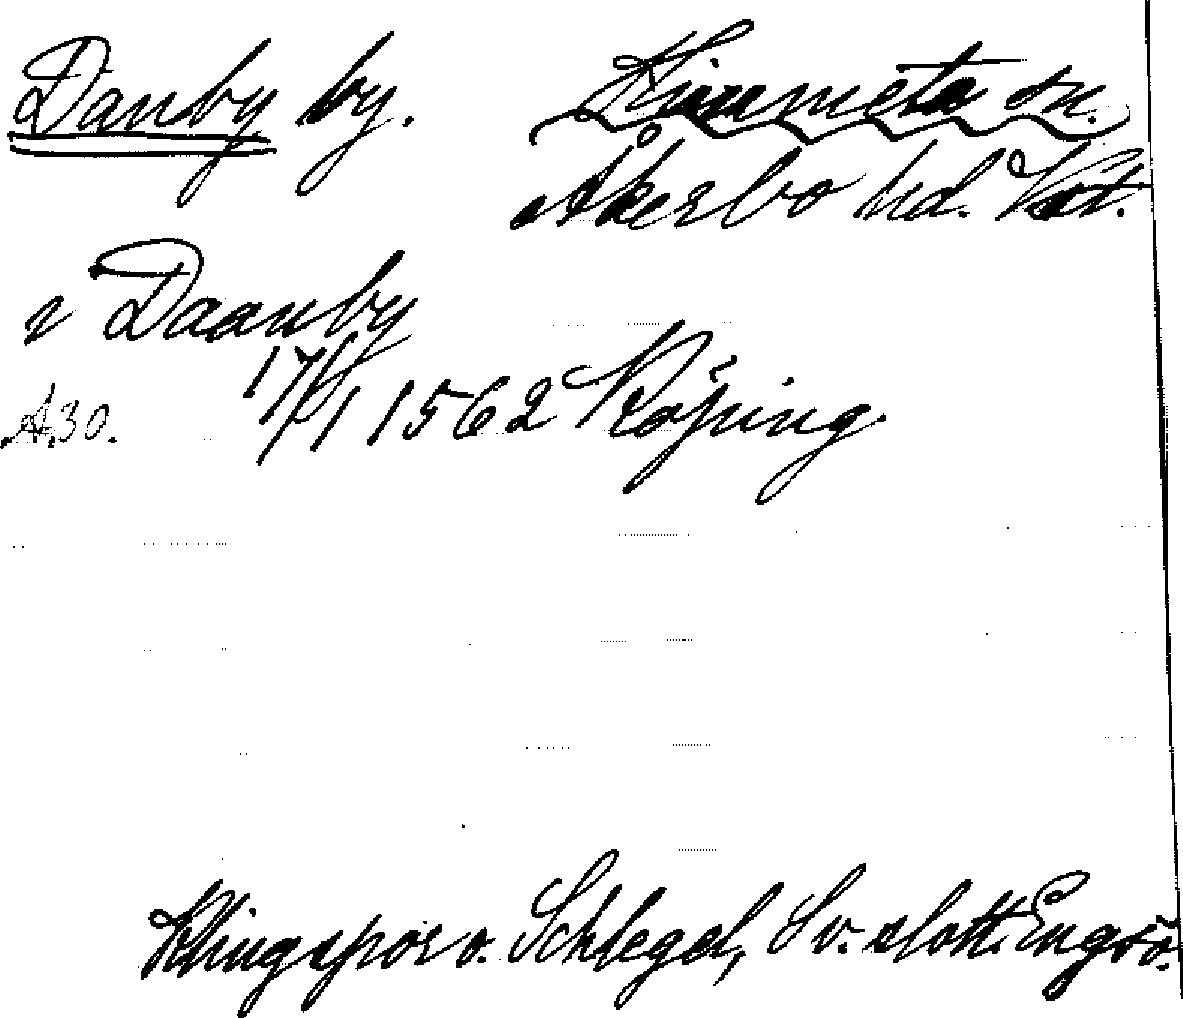 Danby by. Himmeta sn.
Åkerbo hd. Vst.
i Daanby
17/1 1562 Köping.
A.30.
Klingspor o. Schlegel, Sv. slott. Engsö.